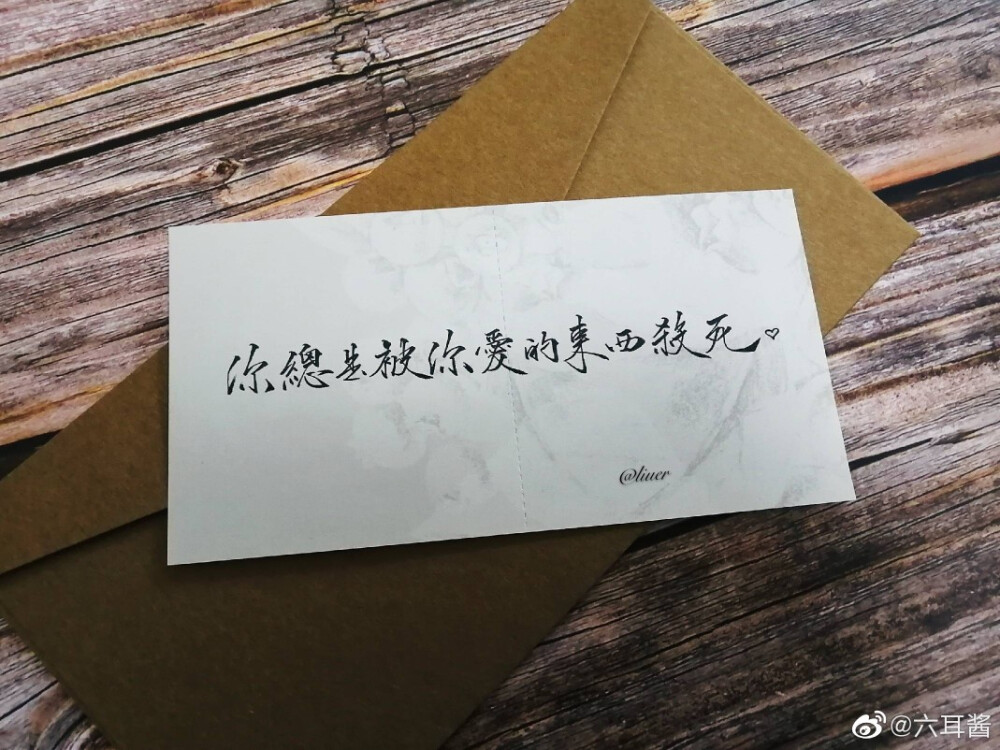 你總是被你愛的東西殺死♡
@liuer
@六耳酱